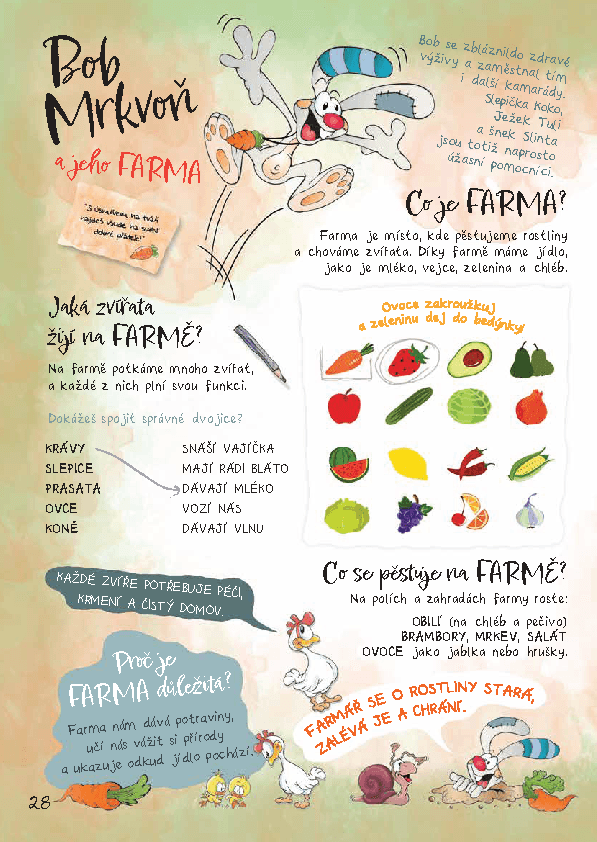 Bob
Mrkvoň
a jeho FARMA
Bob se zbláznildo zdravé
výživy a zaměstnal tím
i další kamarády.
Slepička Koko,
Ježek Tuli
a šnek Slinta
jsou totiž naprosto
úžasní pomocníci.
"S úsměvem na tváři
najdeš všude na světě
dobré přátele!"
Co je FARMA?
Farma je místo, kde pěstujeme rostliny
a chováme zvířata. Díky farmě máme jídlo,
jako je mléko, vejce, zelenina a chléb.
Jaká zvířata
žijí na FARMĚ?
Na farmě potkáme mnoho zvířat,
a každé z nich plní svou funkci.
Dokážeš spojit správné dvojice?
KRÁVY SNÁŠÍ VAJÍČKA
SLEPICE MAJÍ RÁDI BLÁTO
PRASATA DÁVAJÍ MLÉKO
OVCE VOZÍ NÁS
KONĚ DÁVAJÍ VLNU
Ovoce zakroužkuj
a zeleninu dej do bedýnky!
KAŽDÉ ZVÍŘE POTŘEBUJE PÉČI,
KRMENÍ A ČISTÝ DOMOV.
Co se pěstuje na FARMĚ?
Na polích a zahradách farmy roste:
OBILÍ (na chléb a pečivo)
BRAMBORY, MRKEV, SALÁT
OVOCE jako jablka nebo hrušky.
Proč je
FARMA důležitá?
Farma nám dává potraviny,
učí nás vážit si přírody
a ukazuje odkud jídlo pochází.
FARMÁŘ SE O ROSTLINY STARÁ,
ZALÉVÁ JE A CHRÁNÍ.
28